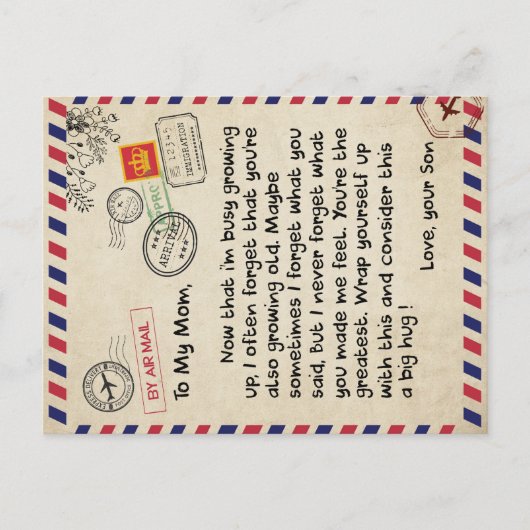 12345
IMMIGRATION
ARRIVAL
EXPRESS DELIVERY
BY AIR MAIL
To My Mom,
Now that i'm busy growing
up, I often forget that you're
also growing old. Maybe
sometimes I forget what you
said, But I never forget what
you made me feel. You're the
greatest. Wrap yourself up
with this and consider this
a big hug !
Love, your Son